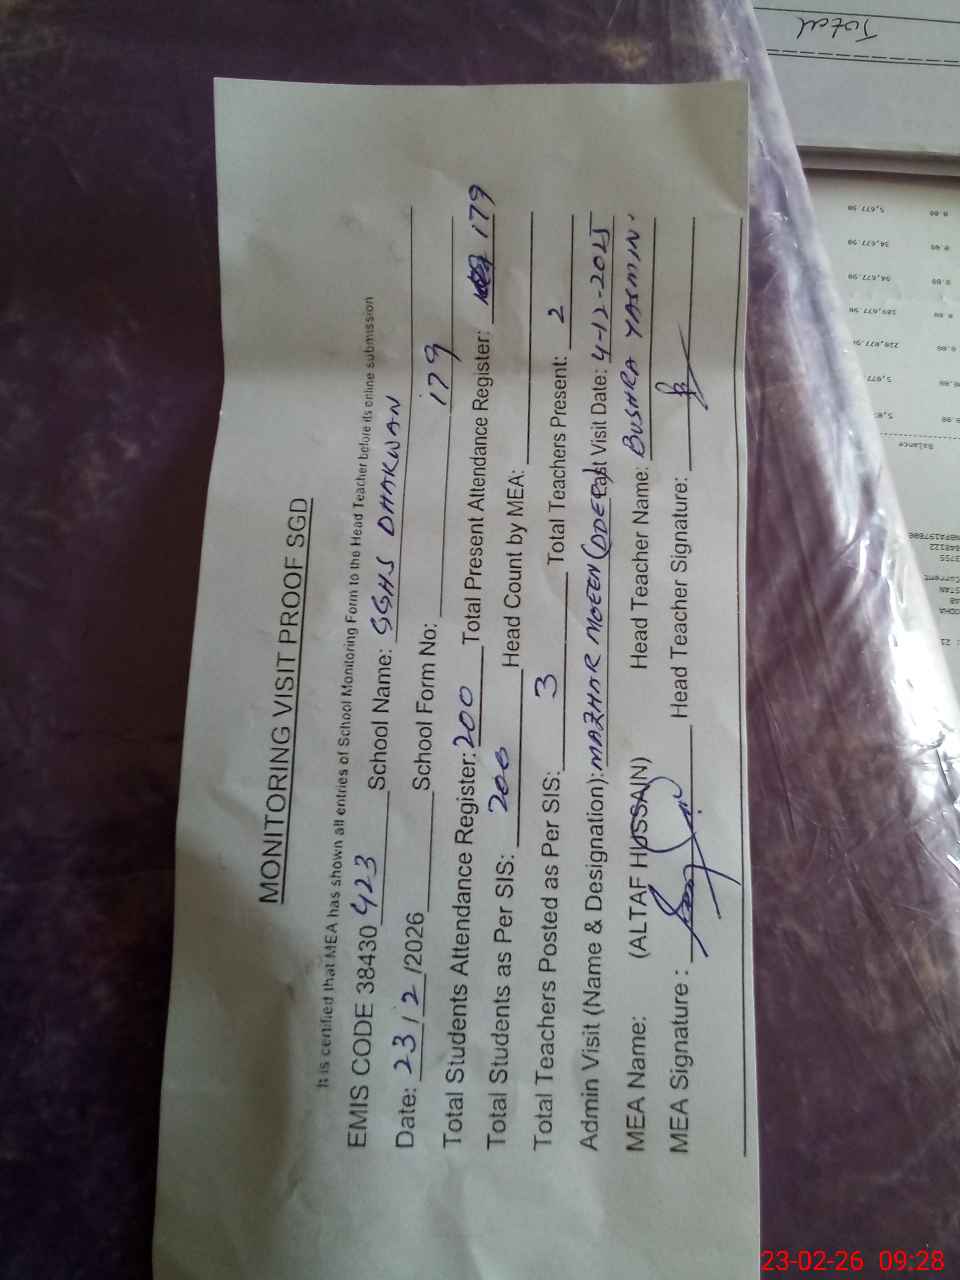 MONITORING VISIT PROOF SGD
It is certified that MEA has shown all entries of School Monitoring Form to the Head Teacher before its online submission
EMIS CODE 38430 423 School Name: GGHS DHAKWAN
Date: 23/2/2026 School Form No: 179
Total Students Attendance Register: 200 Total Present Attendance Register: 179
Total Students as Per SIS: 200 Head Count by MEA:
Total Teachers Posted as Per SIS: 3 Total Teachers Present: 2
Admin Visit (Name & Designation): MAZHAR MOEEN (DDEO) Last Visit Date: 4-12-2025
MEA Name: (ALTAF HUSSAIN) Head Teacher Name: BUSHRA YASMIN.
MEA Signature: Head Teacher Signature:
Total
5,677.90
34,677.90
94,677.90
0.00
0.00
0.00
0.00
Balance
Current
23-02-26 09:28